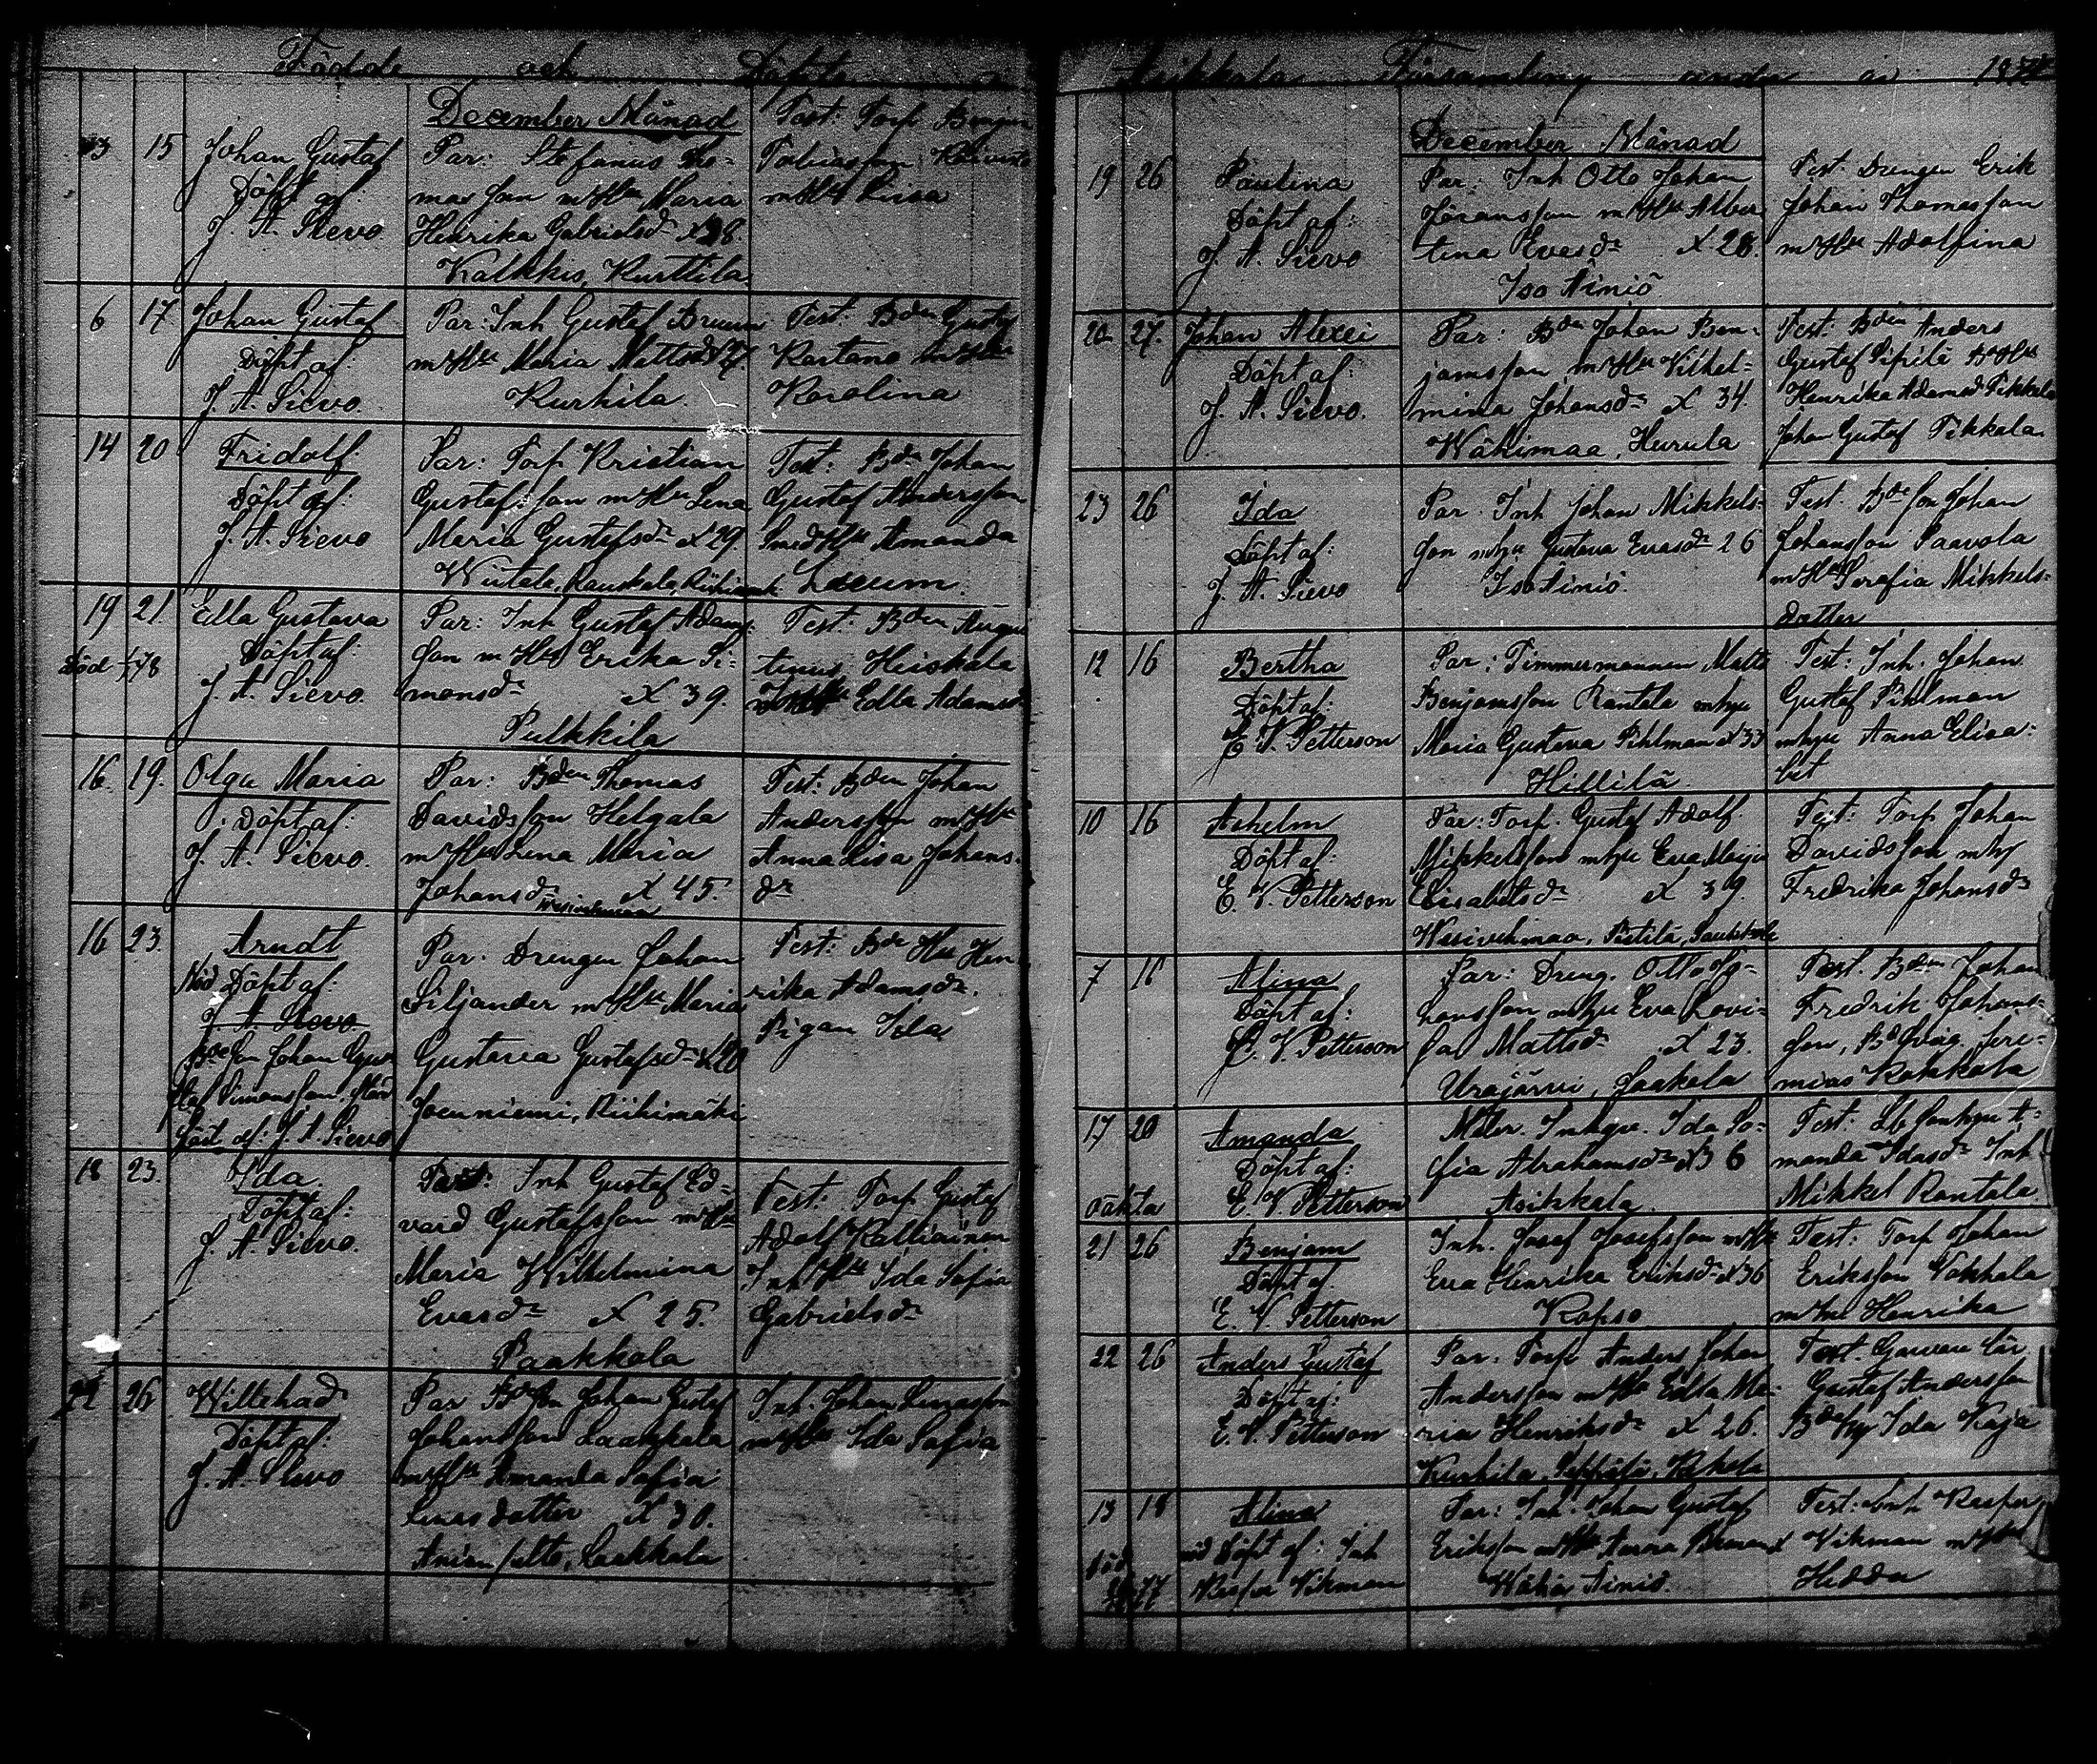 Födde och Döpte i
December Månad
13 15 Johan Gustaf
Döpt af:
J. A. Sievo.
Par: Stefanus Tho-
mas son m Hu Maria
Henrika Gabrielsdr x 38.
Kalkkis, Kurttila
Test: Torp Benjam
Tobiasson Koivisto
m Hu Lissa
6 17. Johan Gustaf
Döpt af:
J. A. Sievo.
Par: Inh Gustaf Bruun
m Hu Maria Mattsdr
Kurhila
Test: Bden Gustaf
Rastamo m Hu
Karolina
14 20 Fridolf
Döpt af:
J. A. Sievo
Par: Torp Kristian
Gustafsson m Hu Lena
Maria Gustafsdr x 29.
Wiitala, Rauskala, Riihimäki
Test: Bdn Johan
Gustaf Andersson
Smed Hu Amanda
19 21. Edla Gustava
Död 78
Döpt af:
J. A. Sievo.
Par: Inh Gustaf Adams-
son m Hu Erika Si-
monsdr x 39.
Pulkkila
Test: Bden Augus
tinus Heiskala
Edla Adamsdr
16. 19. Olga Maria
Döpt af:
J. A. Sievo.
Par: Bden Thomas
Davidsson Helgala
m Hu Lena Maria
Johansdr x 45.
Wesivehmaa
Test: Bden Johan
Andersson m Hu
Anna Lisa Johans-
dr
16 23. Arndt
Nöd Döpt af:
J. A. Sievo
Bde Son Johan Gus
taf Simonsson
fäst af: J. A. Sievo
Par. Drengen Johan
Siljander m Hu Maria
Gustava Gustafsdr x 20
Joenniemi, Riihimäki
Test: Bde Hu Hen
rika Adamsdr.
Pigan Ida
18 23. Ida.
Döpt af:
J. A. Sievo.
Par: Inh Gustaf Ed-
vard Gustafsson m Hu
Maria Wilhelmina
Evasdr x 25.
Paakkola
Test: Torp Gustaf
Adolf Kalliainen
Inh Hu Ida Sofia
Gabrielsdr
22 26 Willehad
Döpt af:
J. A. Sievo
Par Bde Son Johan Gustaf
Johansson Laakkola
m Hu Amanda Sofia
Linasdotter x 30.
Anianpelto, Laakkola
Inh. Johan Linasson
m Hu Ida Sofia
Asikkala Församling under år 1877
December Månad
19 26 Paulina
Döpt af:
J. A. Sievo
Par: Inh Otto Johan
Göransson m Hu Alber
tina Evasdr x 28.
Iso Äiniö
Test: Drengen Erik
Johan Thomasson
m Hu Adolfina
20 27. Johan Alexei
Döpt af:
J. A. Sievo.
Par: Bden Johan Ben-
jamsson m Hu Vilhel-
mina Johansdr x 34.
Wähimaa, Hurula
Test: Bden Anders
Gustaf Pipilä Bd Hu
Henrika Adamsd Tikkala
Johan Gustaf Tikkala
23 26 Ida
Döpt af:
J. A. Sievo
Par. Inh Johan Mikkels-
son m hu Gustava Evasdr 26
Iso Äiniö.
Test. Bde son Johan
Johansson Paavola
m Hu Serafia Mikkels-
dotter
12 16 Bertha
Döpt af:
E. V. Petterson
Par: Timmermannen Matts
Benjamsson Rantala m hu
Maria Gustava Pihlman x 33
Hillilä
Test: Inh. Johan
Gustaf Pihlman
m hu Anna Elisa-
bet
10 16 Anhelm
Döpt af:
E. V. Petterson
Par: Torp. Gustaf Adolf
Mikkelsson m hu Eva Maija
Elisabetsdr x 39.
Wesivehmaa, Pietilä,
Test: Torp Johan
Davidsson m hu
Fredrika Johansdr
7 18 Alina
Döpt af:
E. V. Petterson
Par: Dreng. Otto Jo-
hansson m hu Eva Lovi-
sa Mattsdr x 23.
Urajärvi, Jaakola
Test. Bden Johan
Fredrik Johans-
son, Jere-
mias Kokkala
17 20 Amanda
oäkta
Döpt af:
E. V. Petterson
Moder. Inhqu. Ida So-
fia Abrahamsdr x 36
Asikkala.
Test: A-
manda Idasdr Inh
Mikkel Rantala
21 26 Benjam
Döpt af.
E. V. Petterson
Inh. Josef Josefsson m Hu
Eva Henrika Eriksdr x 36
Kopso
Test: Torp Johan
Eriksson Kokkala
m hu Henrika
22 26 Anders Gustaf
Döpt af:
E. V. Petterson
Par: Torp Anders Johan
Andersson m Hu Edla Ma-
ria Henriksdr x 26.
Kurhila,
Test. Garvare Lär
Gustaf Andersson
Ida Kaja
13 18 Alina
Död 77
nöd Döpt af: Inh
Kasper Vikman
Par: Inh. Johan Gustaf
Eriksson m Hu Anna
Wähä Äiniö.
Test: Inh Kasper
Vikman m Hu
Hedda